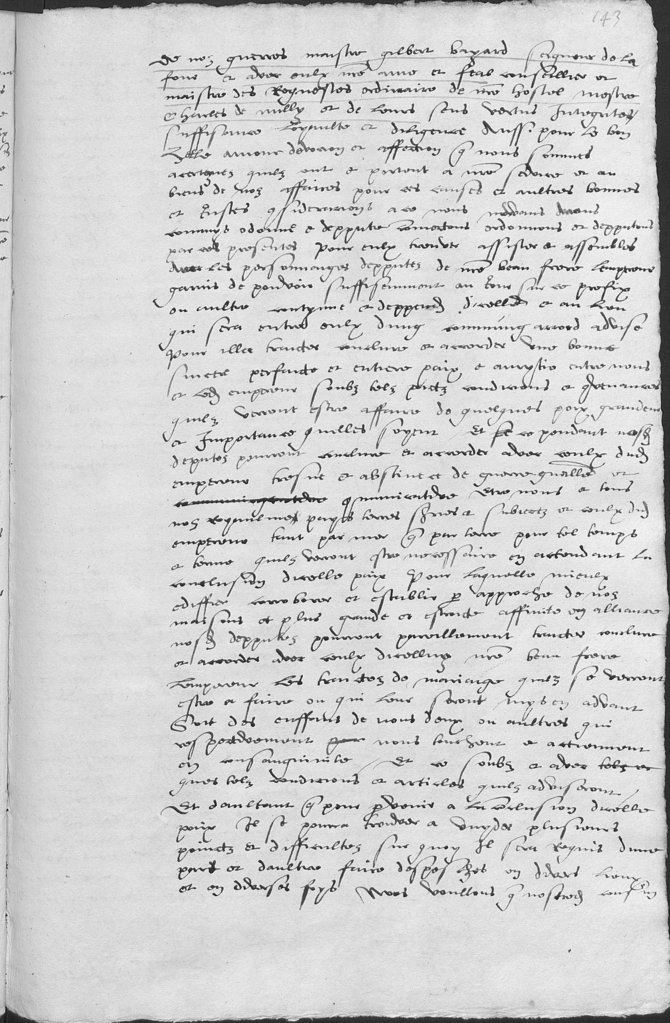 143
de noz guerres maistre gilbert bayard seigneur de la
font et avec eulx nre ame et feal conseillier et
maistre des Requestes ordinaire de nre hostel messre
Charles de milly et de leurs sens vertus Integritez
suffisance loyaulte et diligence Aussi pour le bon
Zelle amour devocion et affection q nous sommes
acertenez quilz ont et portent a nre service et au
bien de noz affaires pour ces causes et aultres bonnes
et Justes considerations a ce nous mouvans avons
commis ordonne et depputé commetons ordonnons et depputons
par ces presentes pour eulx trouver assister et assembler
avec les personnaiges depputez de nre beau frere Lempereur
garnis de pouvoir suffisamment au jour sur ce prefix
ou aultre continué et deppend dicelluy et au lieu
qui sera entre eulx dung commung accord advisé
Pour illec traicter conclure et accorder une bonne
sincere perfaicte et entiere paix et amytie entre nous
et led empereur soubz telz pactz condicions et convenances
quilz verront estre affaire de quelques poix grandeur
et Importance quelles soyent Et ce pendant nosd
deputez pourront conclure et accorder avec ceulx dud
empereur tresve et abstinence de guerre generalle et
communicative entre nous et tous
noz Royaulmes pays terres seigneuries et subiectz et ceulx dud
empereur tant par mer q par terre pour tel temps
et terme quilz verront estre necessaire en actendant la
conclusion dicelle paix Pour laquelle mieulx
ediffier corroborer et establir p approche de noz
maisons et plus grande et estroicte affinite et alliance
nosd depputez pourront pareillement traicter conclure
et accorder avec ceulx dicelluy nre beau frere
Lempereur les traictez de mariaige quilz se verront
estre a faire ou qui leur seront mys en advant
Soit des enffans de nous deux ou aultres qui
respectivement nous touchent et actiennent
en consanguinite Et ce soubz et avec
ques telz condicions et articles quilz adviseront
Et daultant q pour pvenir a la conclusion dicelle
paix Il se pourra trouver a vuyder plusieurs
poinctz et difficultez sur quoy Il sera Requis dune
part et daultre faire despesches en divers lieux
et en diverses foys Nous voullons q nosd